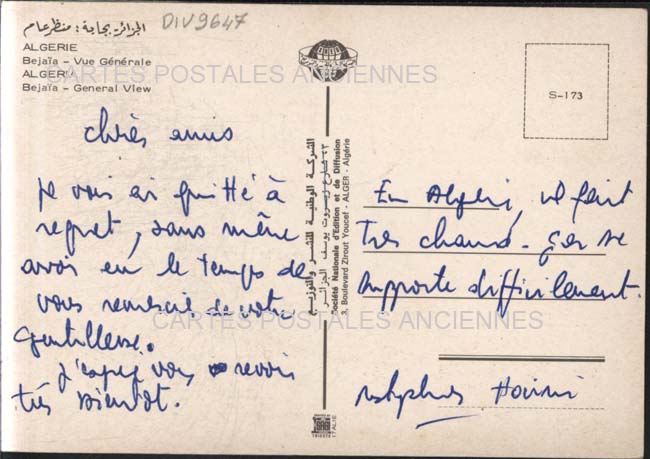 الجزائر بجاية: منظر عام
DIV9647
ALGERIE
Bejaïa - Vue Générale
ALGERIA
Bejaïa - General View
CARTES POSTALES ANCIENNES
chers amis
Je vous ai quitté à
regret, sans même
avoir eu le temps de
vous remercier de votre
gentillesse.
J'espère vous revoir
très bientôt.
الشركة الوطنية للنشر والتوزيع
٣، شارع زيروت يوسف الجزائر
Société Nationale d'Edition et de Diffusion
3, Boulevard Zirout Youcef - ALGER - Algérie
TRIESTE
S-173
En Algérie, il fait
très chaud. ça se
supporte difficilement.
CARTES POSTALES ANCIENNES